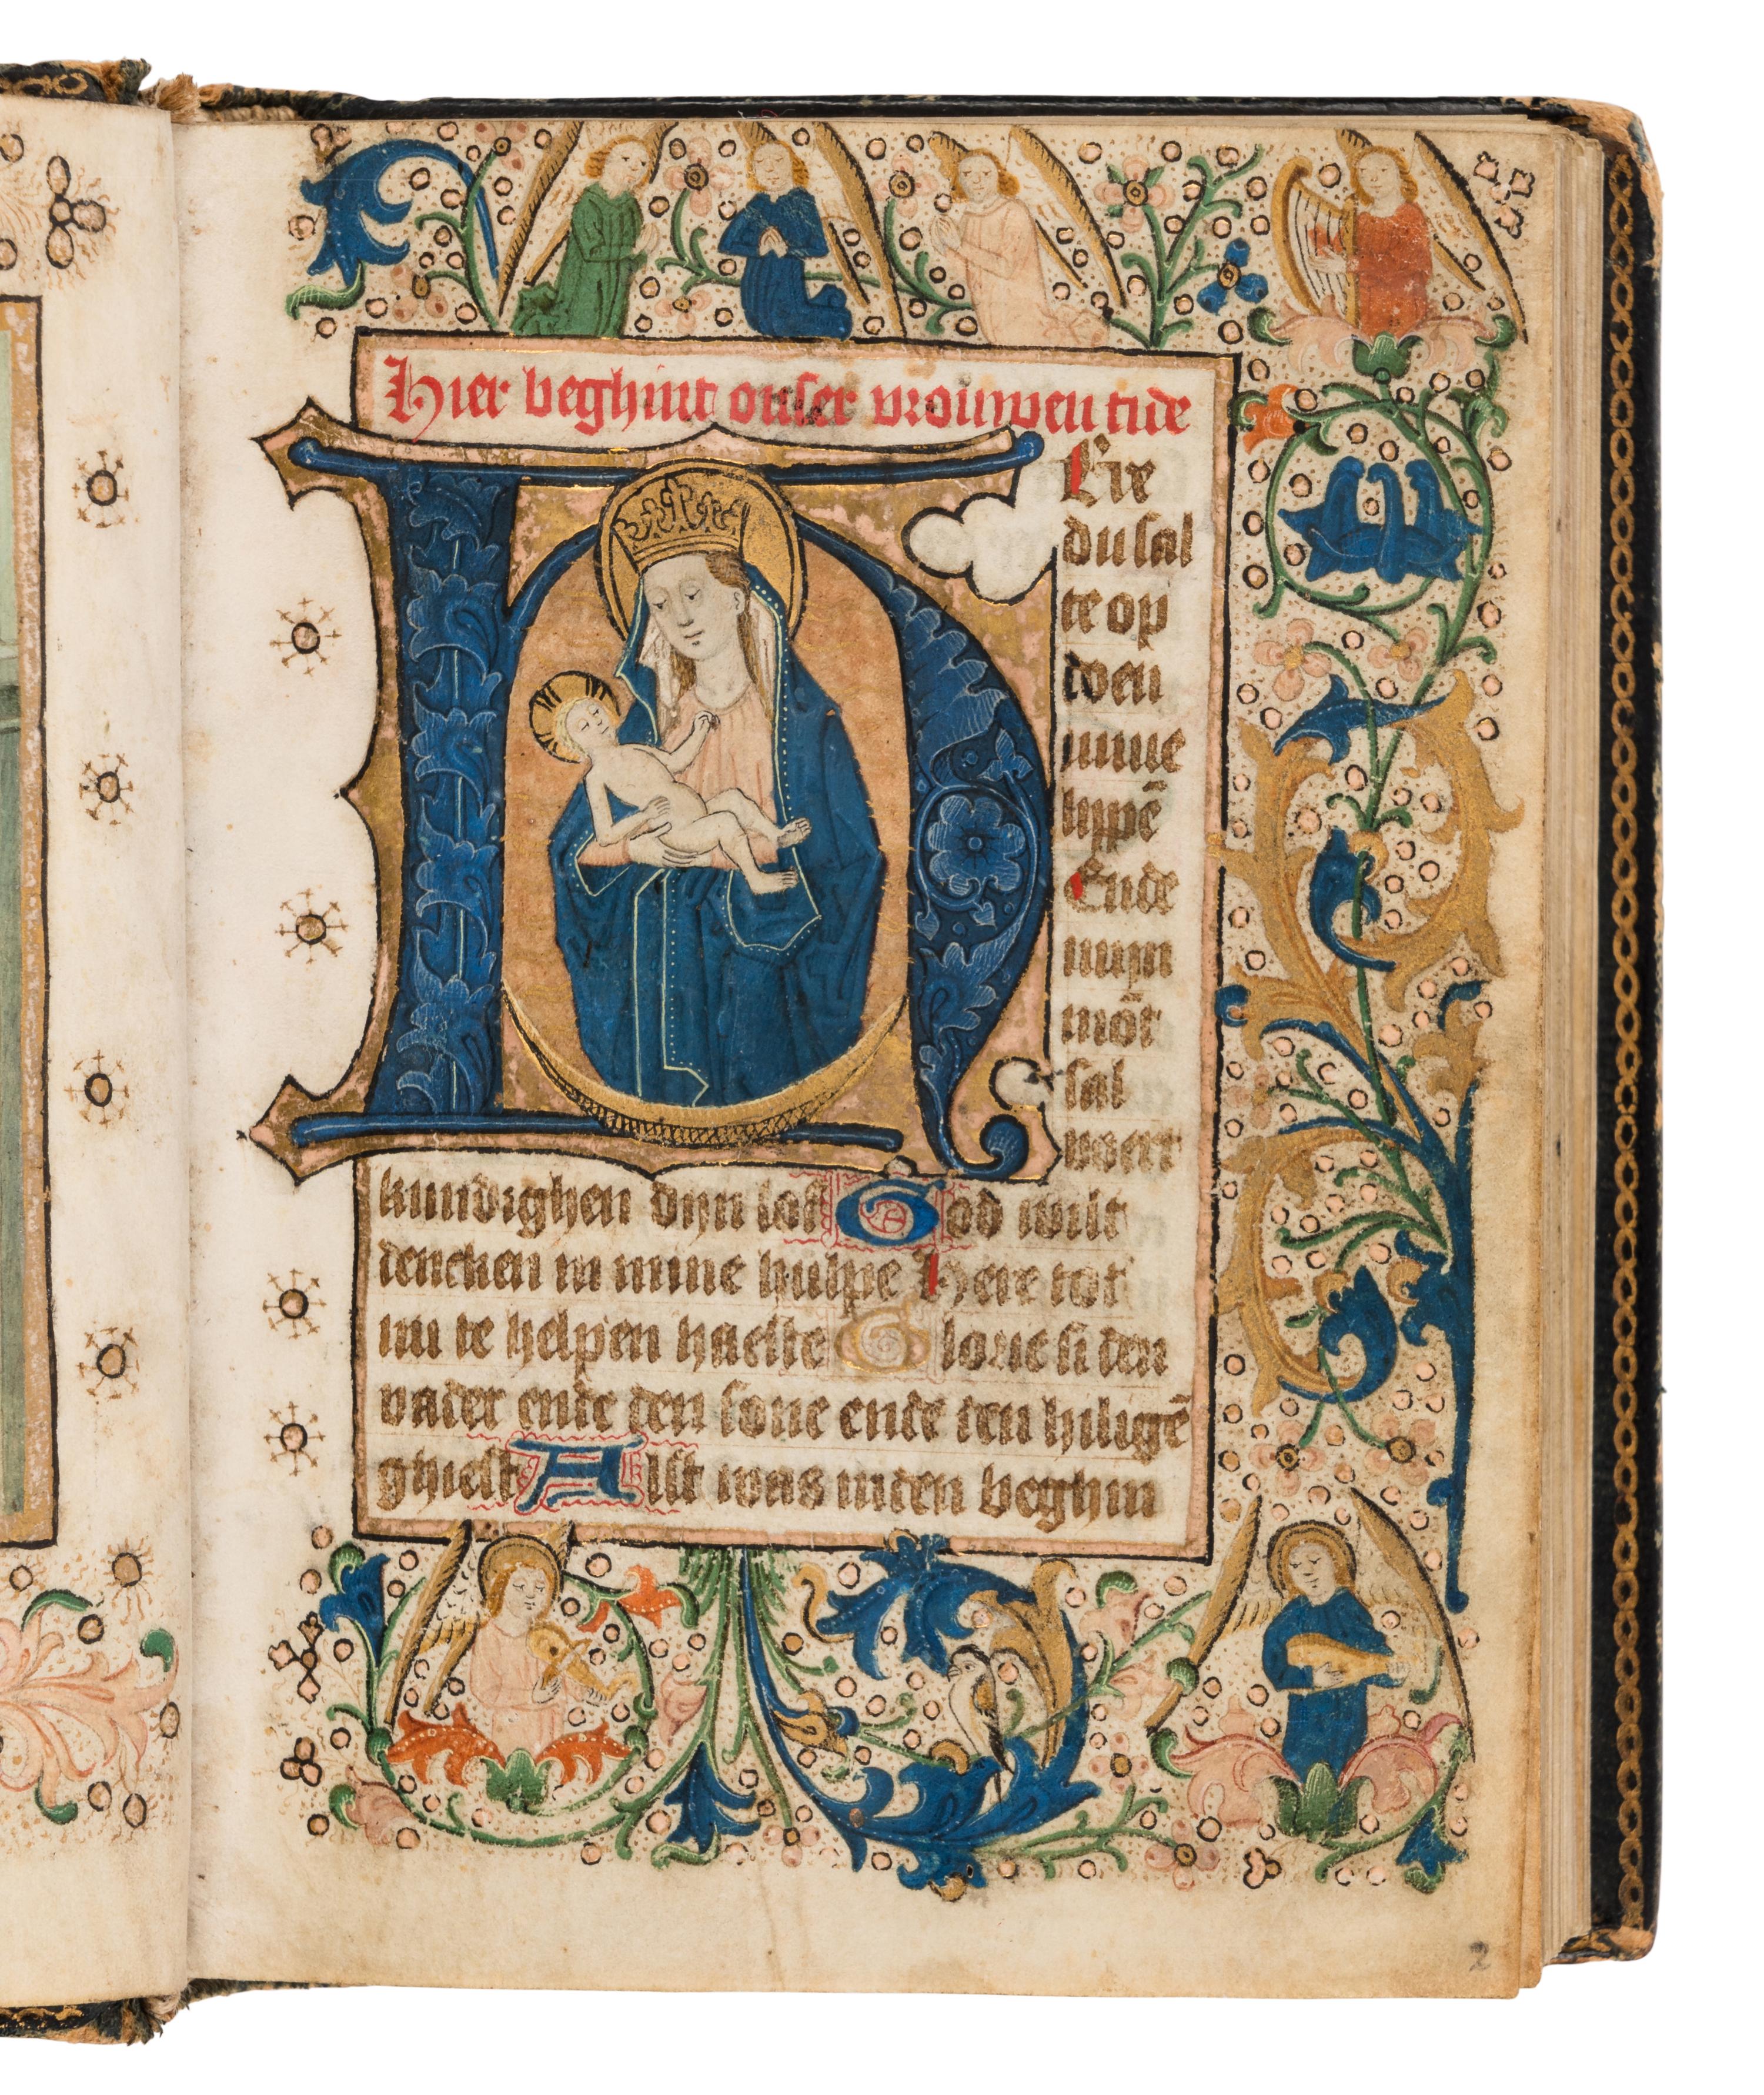 Hier beghint onser vrouwen tide
HEre
du sal
te op
doen
mine
lippē
Ende
mijn
mōt
sal
vert
kundighen dijn lof God wilt
dencken in mine hulpe Here tot
mi te helpen haeste Glorie si den
vader ende den sone ende den hiligē
ghiest Alst was inden beghin
2